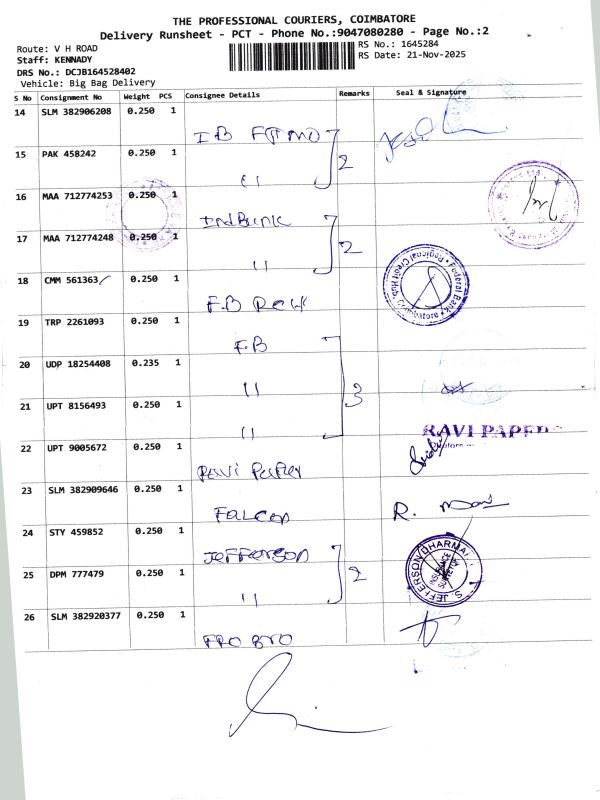 THE PROFESSIONAL COURIERS, COIMBATORE
Delivery Runsheet - PCT - Phone No.:9047080280 - Page No.:2
Route: V H ROAD
RS No.: 1645284
Staff: KENNADY
RS Date: 21-Nov-2025
DRS No.: DCJB164528402
Vehicle: Big Bag Delivery
S No Consignment No Weight PCS Consignee Details Remarks Seal & Signature
14 SLM 382906208 0.250 1
2
15 PAK 458242 0.250 1 "
16 MAA 712774253 0.250 1 IndBank 2
17 MAA 712774248 0.250 1 "
18 CMM 561363 0.250 1 F.B RCH
Federal Bank Regional Credit Hub Coimbatore
19 TRP 2261093 0.250 1 F.B 3
20 UDP 18254408 0.235 1 "
21 UPT 8156493 0.250 1 "
RAVI PAPER
22 UPT 9005672 0.250 1 Ravi Paper
23 SLM 382909646 0.250 1 Falcon R.
24 STY 459852 0.250 1 Jefferson 2
S. JEFFERSON DHARMA
INSURANCE
SURVEYOR
25 DPM 777479 0.250 1 "
26 SLM 382920377 0.250 1 FRO BRO